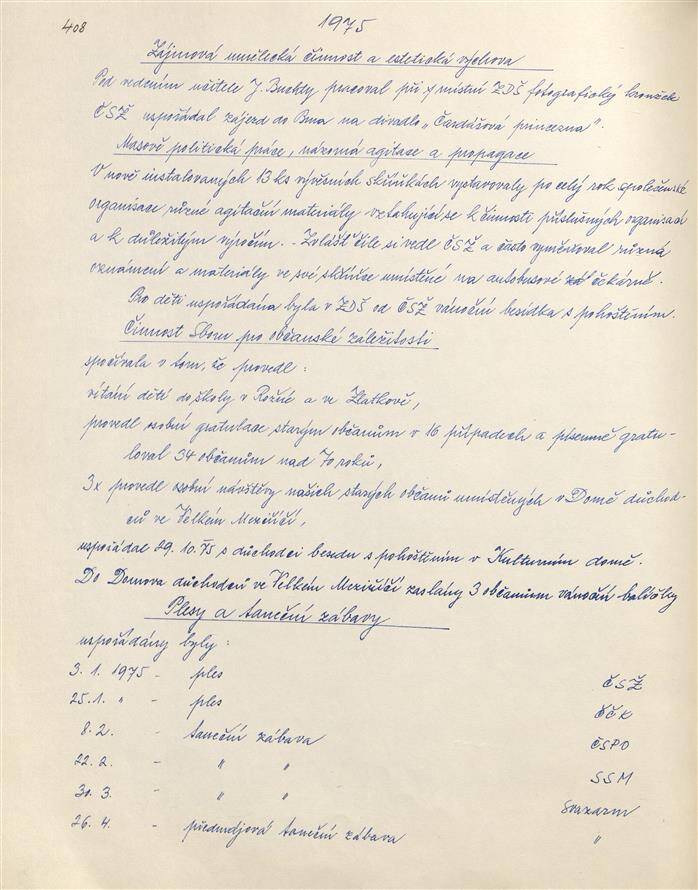 408
1975
Zájmová umělecká činnost a estetická výchova
Pod vedením učitele J. Buchty pracoval při místní ZDŠ fotografický kroužek
ČSŽ uspořádal zájezd do Brna na divadlo „Čardášová princezna".
Masově politická práce, názorná agitace a propagace
V nově instalovaných 13 ks vývěsních skříňkách vystavovaly po celý rok společenské
organisace různé agitační materiály vztahující se k činnosti příslušných organisací
a k důležitým výročím. - Zvlášť čile si vedl ČSŽ a často vyměňoval různá
oznámení a materiály ve své skříňce umístěné na autobusové čekárně.
Pro děti uspořádána byla v ZDŠ od ČSŽ vánoční besídka s pohoštěním.
Činnost Sboru pro občanské záležitosti
spočívala v tom, že provedl:
vítání dětí do školy v Rožné a ve Zlatkově,
provedl osobní gratulace starým občanům v 16 případech a písemně gratu-
loval 34 občanům nad 70 roků,
3x provedl osobní návštěvy našich starých občanů umístěných v Domě důchod-
ců ve Velkém Meziříčí,
uspořádal 29. 10. 75 s důchodci besedu s pohoštěním v Kulturním domě.
Do Domova důchodců ve Velkém Meziříčí zaslány 3 občanům vánoční balíčky
Plesy a taneční zábavy
uspořádány byly:
3. 1. 1975 - ples ČSŽ
25.1. " - ples ČČK
8. 2. - taneční zábava ČSPO
22. 2. - " " SSM
30. 3. - " " Svazarm
26. 4. - předmájová taneční zábava "